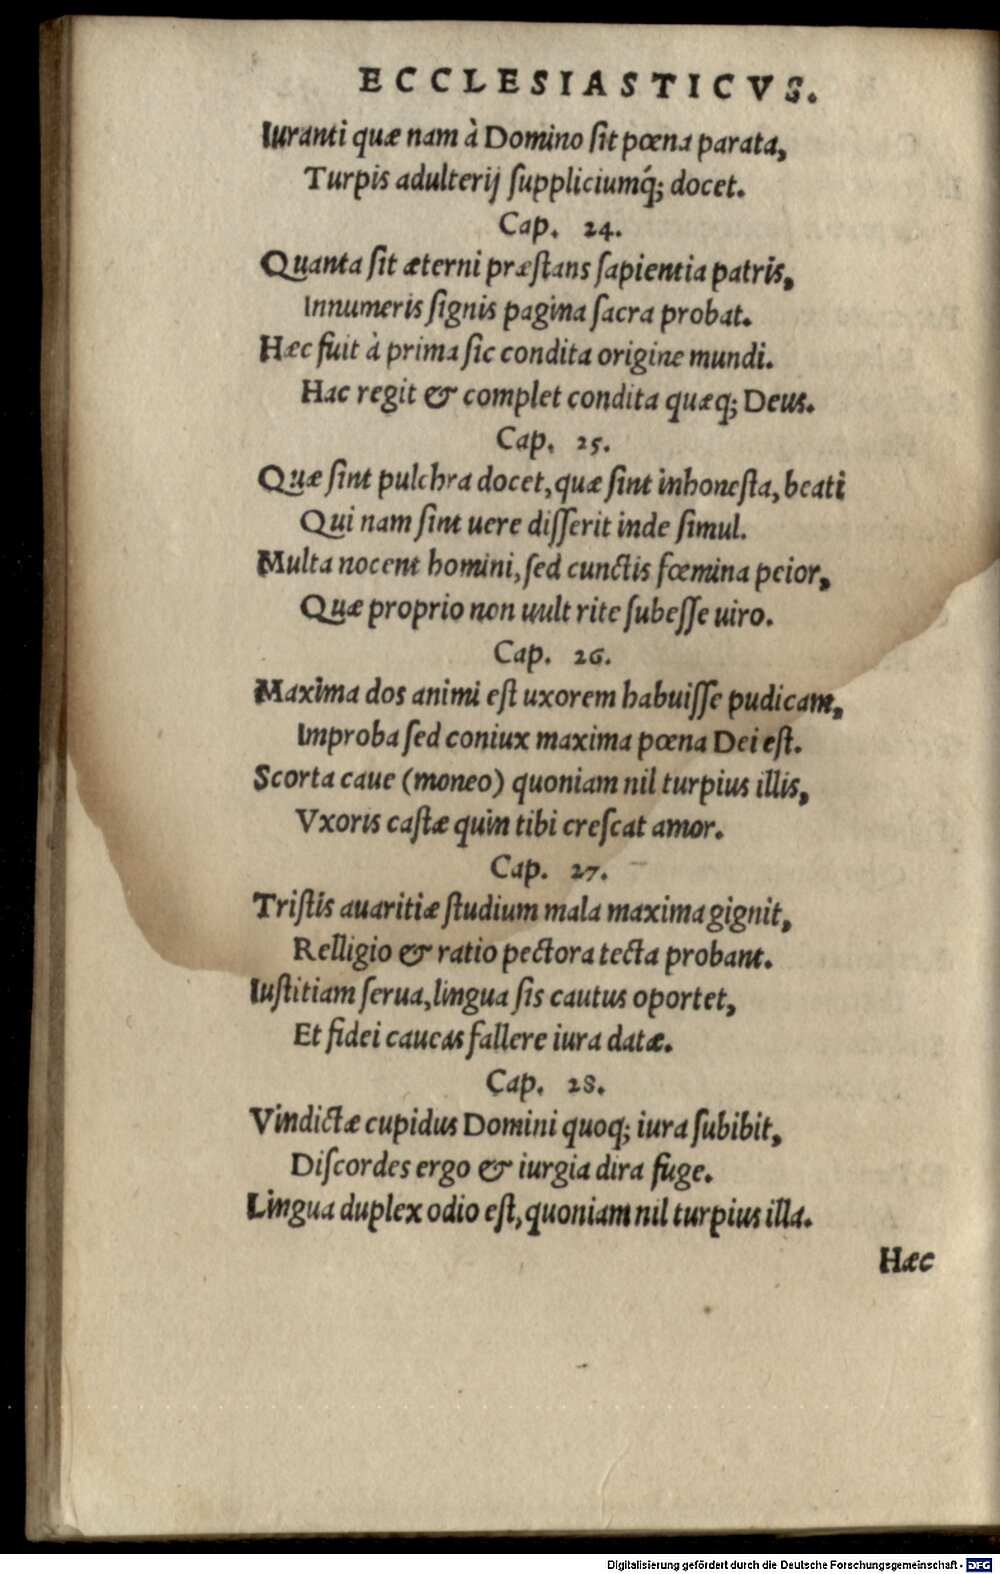 ECCLESIASTICVS.
Iuranti quæ nam à Domino ſit pœna parata,
Turpis adulterij ſuppliciumq́; docet.
Cap. 24.
Quanta ſit æterni præſtans ſapientia patris,
Innumeris ſignis pagina ſacra probat.
Hæc fuit à prima ſic condita origine mundi.
Hac regit & complet condita quæq; Deus.
Cap. 25.
Quæ ſint pulchra docet, quæ ſint inhoneſta, beati
Qui nam ſint uere diſſerit inde ſimul.
Multa nocent homini, ſed cunctis fœmina peior,
Quæ proprio non uult rite ſubeſſe uiro.
Cap. 26.
Maxima dos animi eſt uxorem habuiſſe pudicam,
Improba ſed coniux maxima pœna Dei eſt.
Scorta caue (moneo) quoniam nil turpius illis,
Vxoris caſtæ quin tibi creſcat amor.
Cap. 27.
Triſtis auaritiæ ſtudium mala maxima gignit,
Relligio & ratio pectora tecta probant.
Iuſtitiam ſerua, lingua ſis cautus oportet,
Et fidei caueas fallere iura datæ.
Cap. 28.
Vindictæ cupidus Domini quoq; iura ſubibit,
Diſcordes ergo & iurgia dira fuge.
Lingua duplex odio eſt, quoniam nil turpius illa.
Hæc
Digitalisierung gefördert durch die Deutsche Forschungsgemeinschaft - DFG